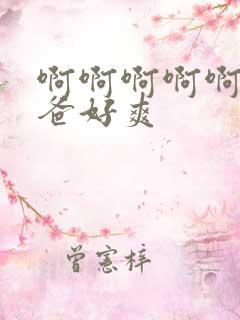 啊啊啊啊啊
爸好爽
曾宪梓